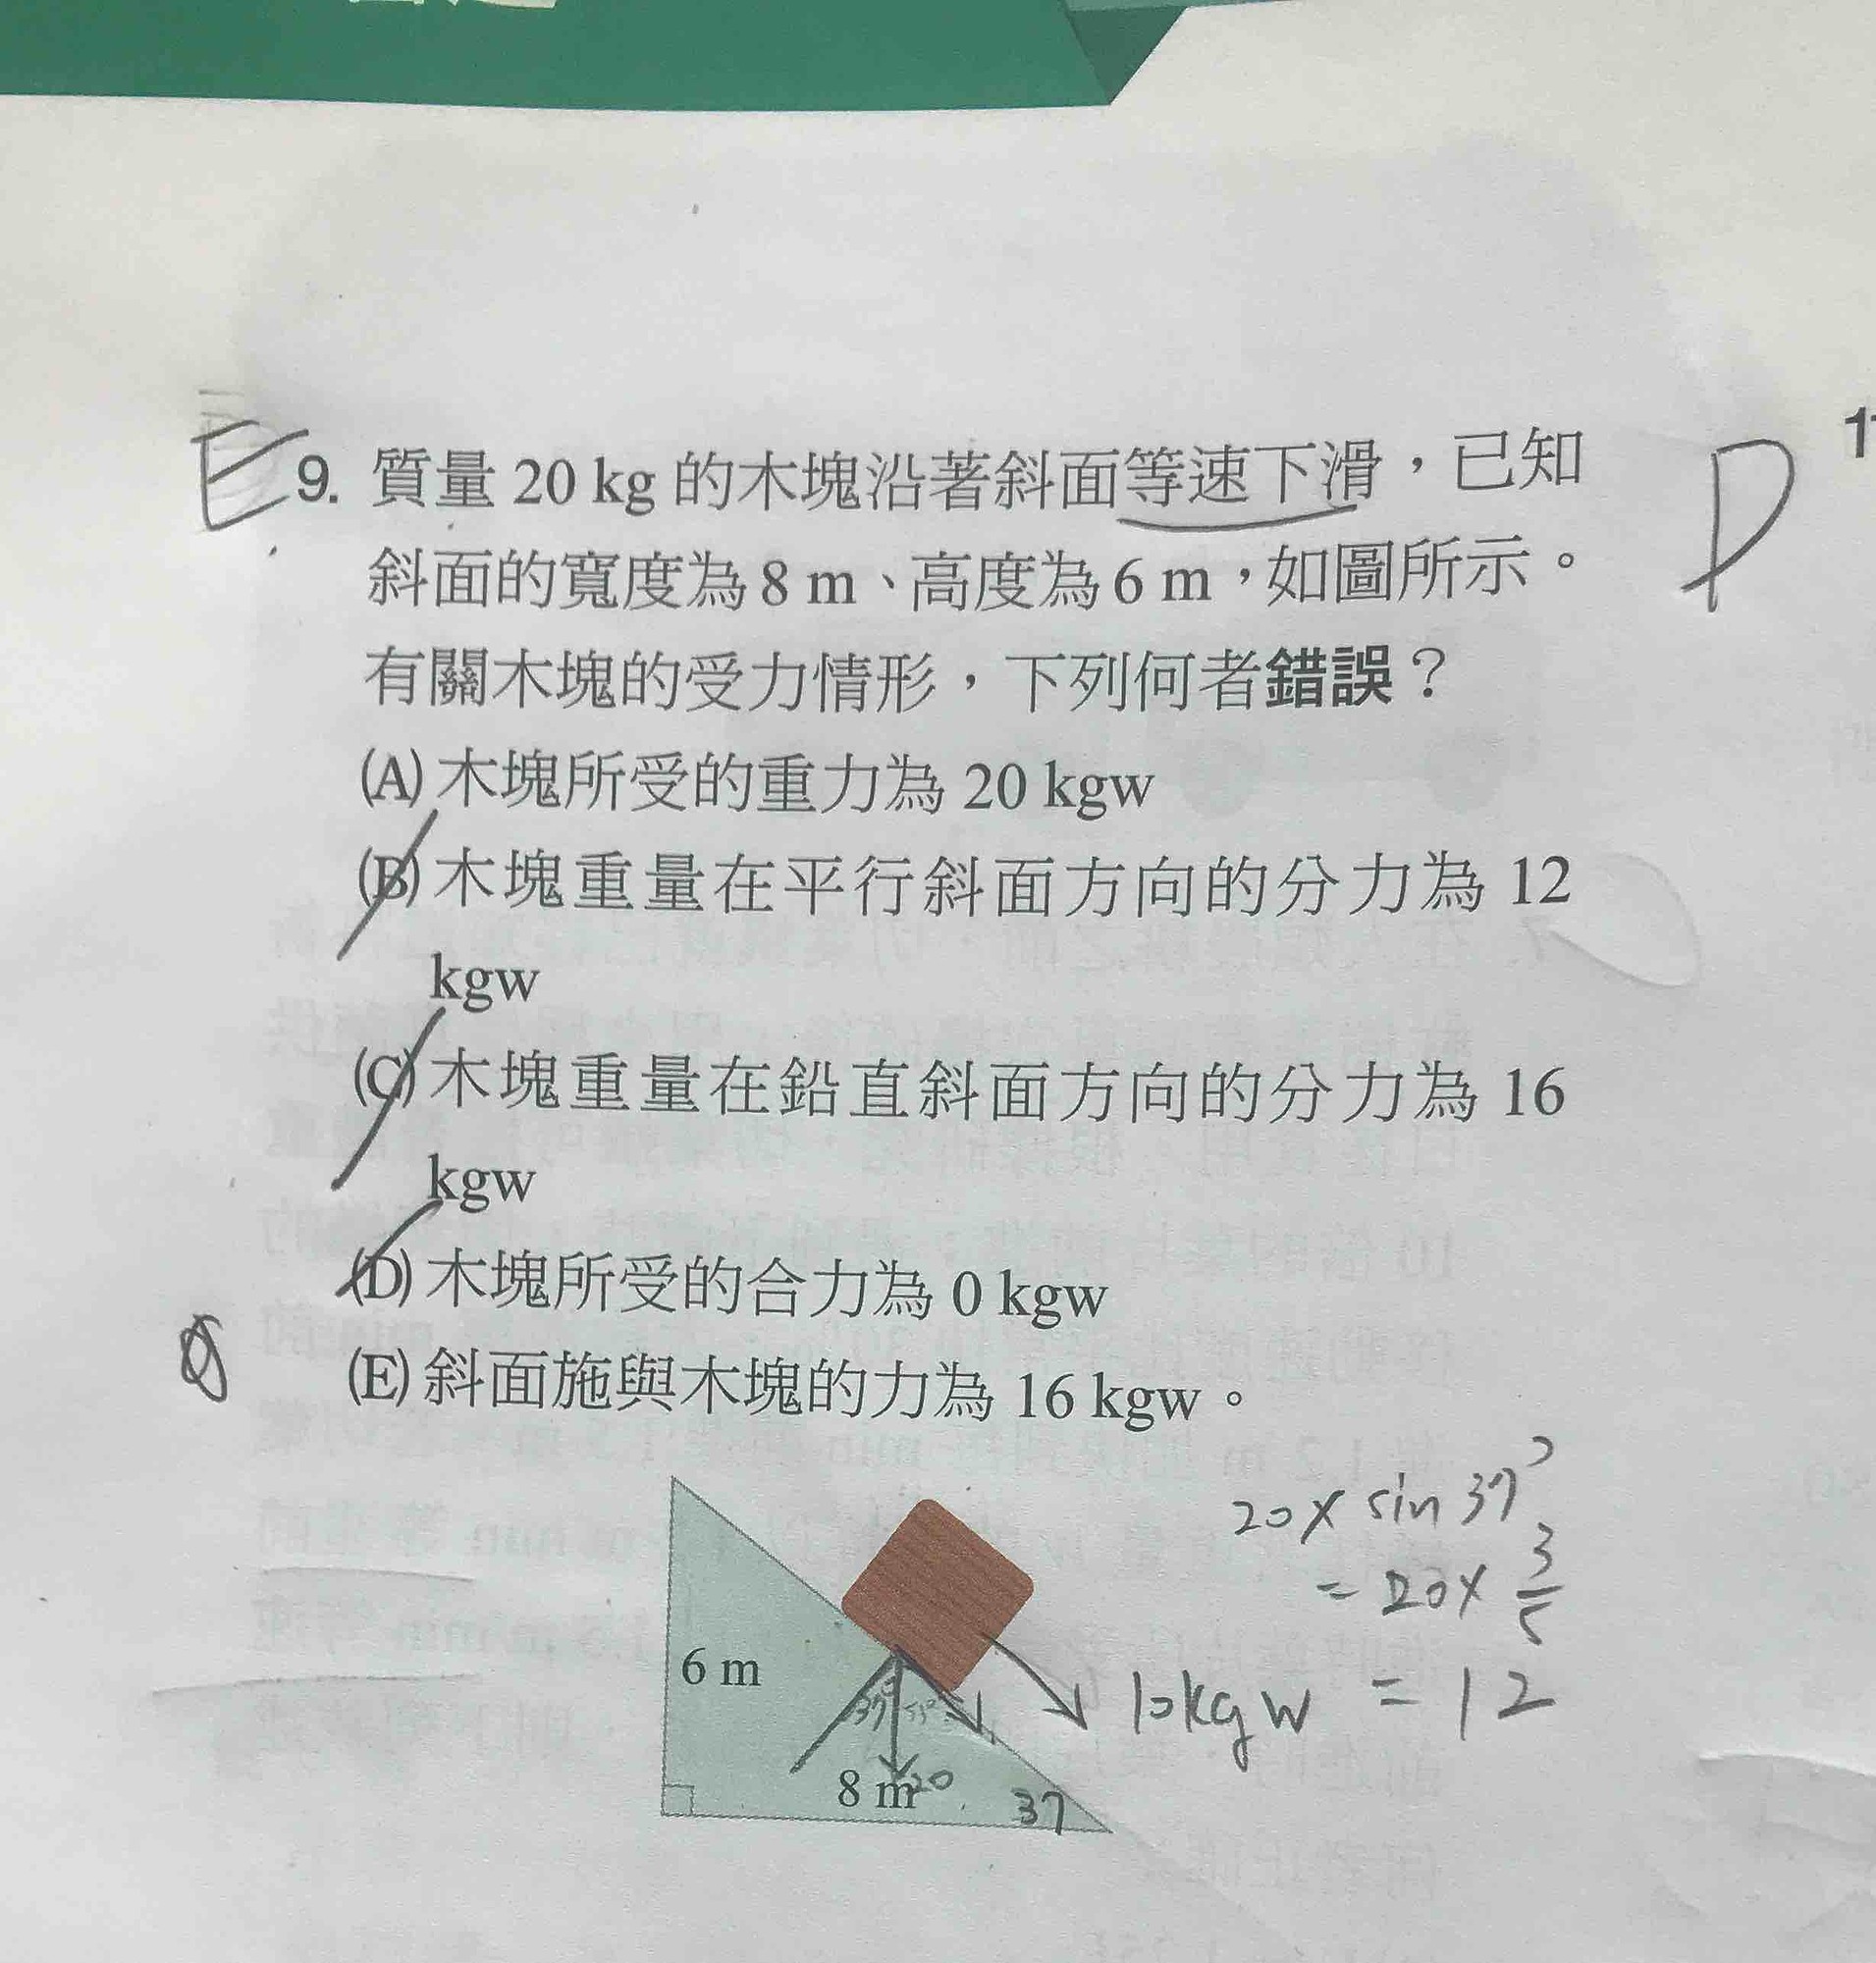 E 9. 質量 20 kg 的木塊沿著斜面等速下滑，已知
斜面的寬度為 8 m、高度為 6 m，如圖所示。
有關木塊的受力情形，下列何者錯誤？
(A) 木塊所受的重力為 20 kgw
(B) 木塊重量在平行斜面方向的分力為 12
kgw
(C) 木塊重量在鉛直斜面方向的分力為 16
kgw
(D) 木塊所受的合力為 0 kgw
(E) 斜面施與木塊的力為 16 kgw。
20 × sin 37°
= 20 × 3/5
= 12
10 kgw
6 m
37° 53°
8 m
20
37
D